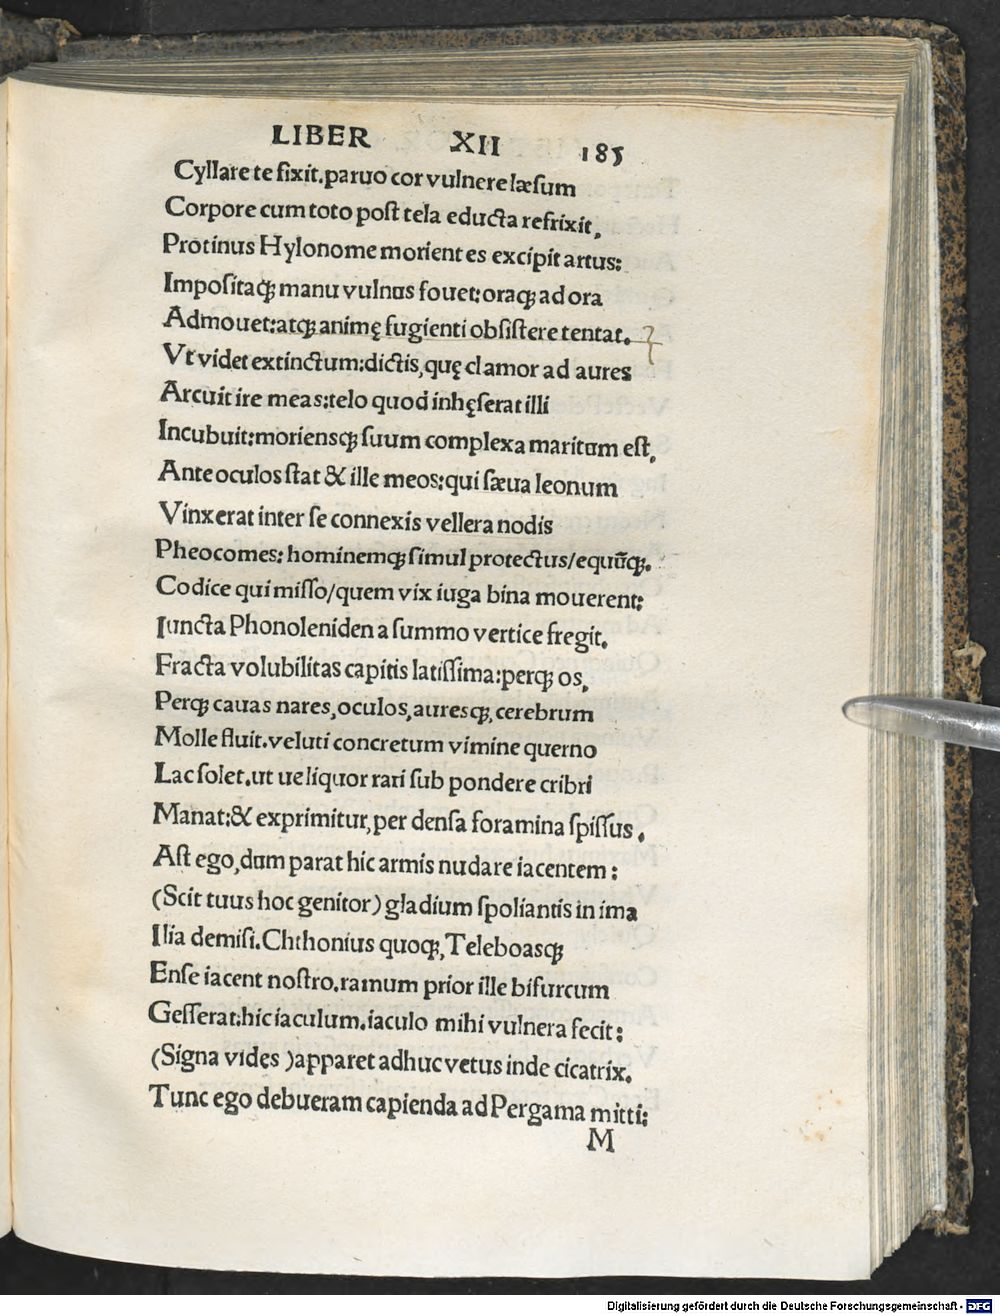 LIBER XII 185
Cyllare te fixit.paruo cor vulnere læsum
Corpore cum toto post tela educta refrixit,
Protinus Hylonome morientes excipit artus:
Impositaqꝫ manu vulnus fouet:oraqꝫ ad ora
Admouet:atqꝫ animę fugienti obsistere tentat.
Vt videt extinctum:dictis,quę clamor ad aures
Arcuit ire meas:telo quod inhęserat illi
Incubuit:moriensqꝫ suum complexa maritum est,
Ante oculos stat & ille meos:qui sæua leonum
Vinxerat inter se connexis vellera nodis
Pheocomes: hominemqꝫ simul protectus/equũqꝫ.
Codice qui misso/quem vix iuga bina mouerent:
Iuncta Phonoleniden a summo vertice fregit.
Fracta volubilitas capitis latissima:perqꝫ os,
Perqꝫ cauas nares,oculos,auresqꝫ,cerebrum
Molle fluit.veluti concretum vimine querno
Lac solet.ut ue liquor rari sub pondere cribri
Manat:& exprimitur,per densa foramina spissus.
Ast ego,dum parat hic armis nudare iacentem:
(Scit tuus hoc genitor) gladium spoliantis in ima
Ilia demisi.Chthonius quoqꝫ,Teleboasqꝫ
Ense iacent nostro.ramum prior ille bifurcum
Gesserat:hic iaculum.iaculo mihi vulnera fecit:
(Signa vides )apparet adhuc vetus inde cicatrix.
Tunc ego debueram capienda ad Pergama mitti:
M
Digitalisierung gefördert durch die Deutsche Forschungsgemeinschaft - DFG